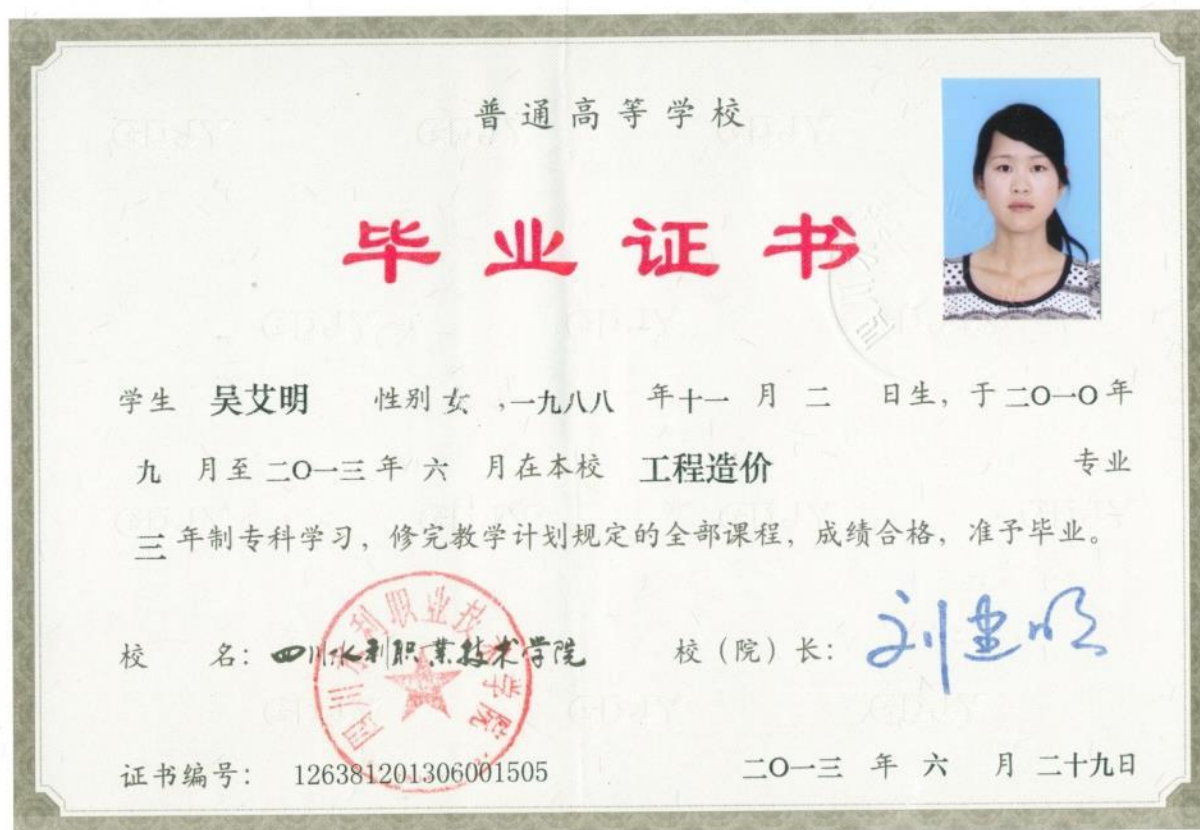 普通高等学校
毕业证书
学生 吴艾明 性别 女 ,一九八八 年十一 月 二 日生，于二〇一〇年
九 月至 二〇一三 年 六 月在本校 工程造价 专业
三 年制专科学习，修完教学计划规定的全部课程，成绩合格，准予毕业。
校 名：四川水利职业技术学院 校（院）长：刘建明
四川水利职业技术学院
证书编号： 126381201306001505 二〇一三 年 六 月 二十九日